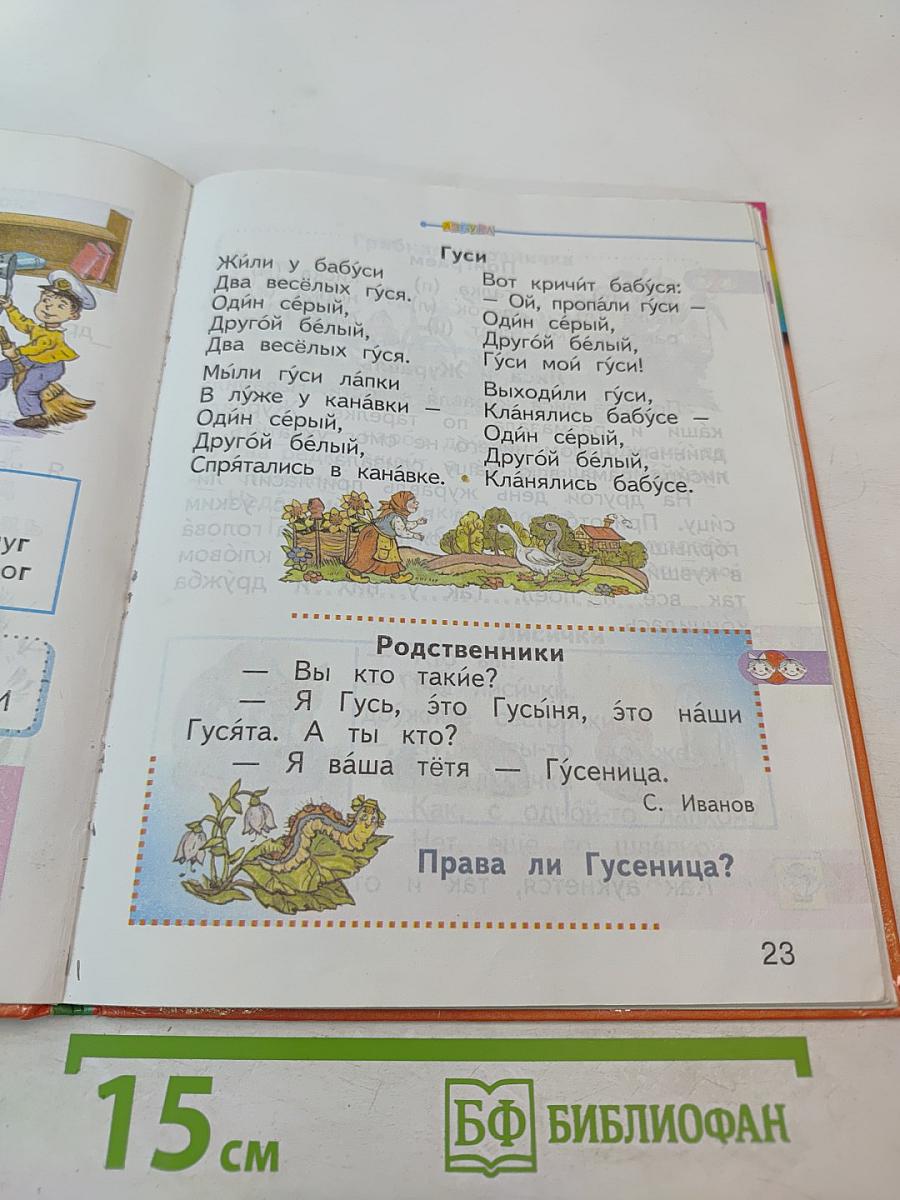 АЗБУКА
Гуси
Жи́ли у бабу́си
Два весёлых гу́ся.
Оди́н се́рый,
Друго́й бе́лый,
Два весёлых гу́ся.
Мы́ли гу́си ла́пки
В лу́же у кана́вки —
Оди́н се́рый,
Друго́й бе́лый,
Спря́тались в кана́вке.
Вот кричи́т бабу́ся:
— Ой, пропа́ли гу́си —
Оди́н се́рый,
Друго́й бе́лый,
Гу́си мои́ гу́си!
Выходи́ли гу́си,
Кла́нялись бабу́се —
Оди́н се́рый,
Друго́й бе́лый,
Кла́нялись бабу́се.
Родственники
— Вы кто таки́е?
— Я Гусь, э́то Гусы́ня, э́то на́ши
Гуся́та. А ты кто?
— Я ва́ша тётя — Гу́сеница.
С. Иванов
Права ли Гусеница?
23
уг
ог
и
15 см
БФ БИБЛИОФАН